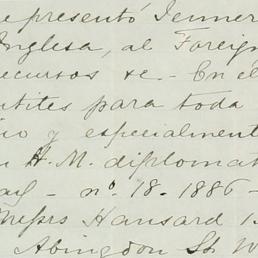 e presentó Jenner
Inglesa, al Foreign
ecursos &c - En el
para toda
y especialmente
H. M. diplomat
nº 18. 1886 -
Messrs Hansard 13
Abingdon St. W